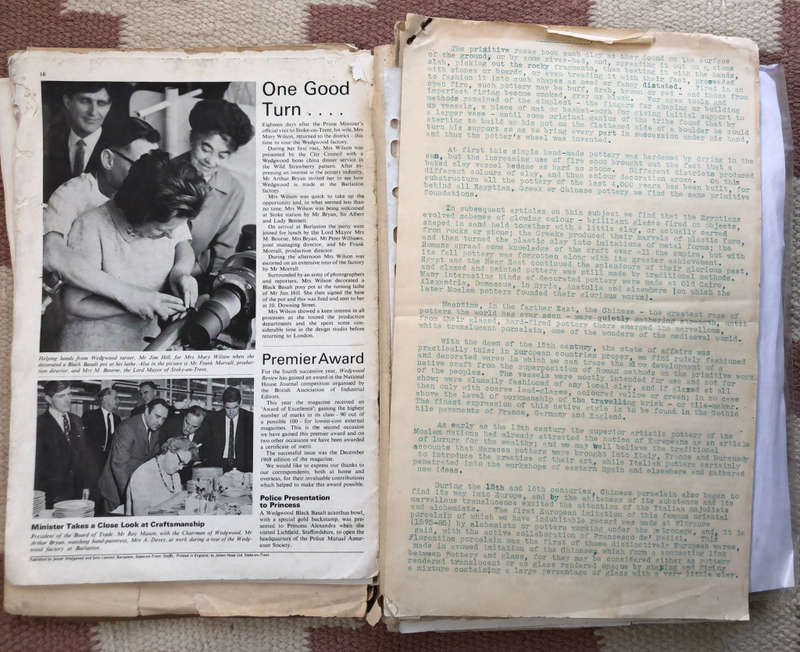 16
One Good
Turn . . . .
Eighteen days after the Prime Minister's
official visit to Stoke-on-Trent, his wife, Mrs
Mary Wilson, returned to the district - this
time to tour the Wedgwood factory.
During her first visit, Mrs Wilson was
presented by the City Council with a
Wedgwood bone china dinner service in
the Wild Strawberry pattern. After ex-
pressing an interest in the pottery industry,
Mr Arthur Bryan invited her to see how
Wedgwood is made at the Barlaston
factory.
Mrs Wilson was quick to take up the
opportunity and, in what seemed less than
no time, Mrs Wilson was being welcomed
at Stoke station by Mr Bryan, Sir Albert
and Lady Bennett.
On arrival at Barlaston the party were
joined for lunch by the Lord Mayor Mrs
M. Bourne, Mrs Bryan, Mr Peter Williams,
joint managing director, and Mr Frank
Morrall, production director.
During the afternoon Mrs Wilson was
escorted on an extensive tour of the factory
by Mr Morrall.
Surrounded by an army of photographers
and reporters, Mrs Wilson decorated a
Black Basalt posy pot at the turning lathe
of Mr Jim Hill. She then signed the base
of the pot and this was fired and sent to her
at 10, Downing Street.
Mrs Wilson showed a keen interest in all
processes as she toured the production
departments and she spent some con-
siderable time in the design studio before
returning to London.
Helping hands from Wedgwood turner, Mr Jim Hill, for Mrs Mary Wilson when she
decorated a Black Basalt pot at his lathe. Also in the picture is Mr Frank Morrall, produc-
tion director, and Mrs M. Bourne, the Lord Mayor of Stoke-on-Trent.
Premier Award
For the fourth successive year, Wedgwood
Review has gained an award in the National
House Journal competition organised by
the British Association of Industrial
Editors.
This year the magazine received an
'Award of Excellence', gaining the highest
number of marks in its class - 90 out of
a possible 100 - for lowest-cost external
magazines. This is the second occasion
we have gained this premier award and on
two other occasions we have been awarded
a certificate of merit.
The successful issue was the December
1969 edition of the magazine.
We would like to express our thanks to
our correspondents, both at home and
overseas, for their invaluable contributions
which helped to make this award possible.
Police Presentation
to Princess
A Wedgwood Black Basalt acanthus bowl,
with a special gold backstamp, was pre-
sented to Princess Alexandra when she
visited Lichfield, Staffordshire, to open the
headquarters of the Police Mutual Assur-
ance Society.
Minister Takes a Close Look at Craftsmanship
President of the Board of Trade, Mr Roy Mason, with the Chairman of Wedgwood, Mr
Arthur Bryan, watching hand-paintress, Mrs A. Davey, at work during a tour of the Wedg-
wood factory at Barlaston.
The primitive races took such clay as they found on the surface
of the ground, or by some river-bed, and,
slab, picking out the rocky
with stones or boards, or even treading it with their feet, proceeded
to fashion it into such shapes as need or fancy dictated. Fired in an
open fire, such pottery may be buff, drab,
methods remained of the simplest - the fingers
up vessels, a piece of mat or basket-work for giving initial support to
a larger vase - until some original genius of the tribe found that by
starting to build up his pot on the flattened side of a boulder he could
turn his support so as to bring every part in succession under his hand,
and thus the potter's wheel was invented.
At first this simple hand-made pottery was hardened by drying in the
sun, but the increasing use of fire soon brought out the fact that a
baked clay vessel became as hard as stone. Different districts produced
different colours of clay, and thus colour decoration arose. On this
substructure all the pottery of the last 4,000 years has been built, for
behind all Egyptian, Greek or Chinese pottery we find the same primitive
foundations.
In subsequent articles on this subject we find that the Egyptians
evolved schemes of glorious colour - brilliant glazes fired on objects,
shaped in sand held together with a little clay, or actually carved
from rocks or stone; the Greeks produced their marvels of plastic form,
and then turned the plastic clay into imitations of metal forms; the
Romans spread some knowledge of the craft over all the empire, but with
its fall pottery was forgotten along with its greater achievement.
Egypt and the Near East continued the splendours of their glorious past,
and glazed and painted pottery was still made by traditional methods.
Many interesting kinds of decorated pottery were made at Old Cairo,
Alexandria, Damascus, in Syria, Anatolia and elsewhere (on which the
later Moslem potters founded their glorious works).
Meantime, in the farther East, the Chinese - the greatest race of
potters the world has ever seen - were quietly gathering strength, until
from their glazed, hard-fired pottery there emerged the marvellous,
white translucent porcelain, one of the wonders of the mediaeval world.
With the dawn of the 15th century, the state of affairs was
practically this: in European countries proper, we find rudely fashioned
and decorated wares in which we can trace the slow development of a
native craft from the superposition of
of the peoples. The vessels were mainly intended for use and not for
show; were clumsily fashioned of any local clay, and if glazed at all
then only with coarse lead-glazes, coloured yellow or green; in no case
above the level of workmanship of the travelling brick - or tile-maker.
The finest expression of this native style is to be found in the Gothic
tile pavements of France, Germany and England.
As early as the 12th century the superior artistic pottery of the
Moslem nations had already attracted the notice of Europeans as an article
of luxury for the wealthy; and we may well believe the traditional
accounts that Saracen potters were brought into Italy, France and Burgundy
to introduce the practice of their art, while Italian potters certainly
penetrated into the workshops of eastern Spain and elsewhere and gathered
new ideas.
During the 15th and 16th centuries, Chinese porcelain also began to
find its way into Europe, and by the whiteness of its substance and its
marvellous translucence excited the attention of the Italian majolists
and alchemists. The first European imitation of this famous oriental
porcelain of which we have indubitable record was made at Florence
(1575-85) by alchemists or potters working under the patronage, and, it is
said, with the active collaboration of Francesco de' Medici. This
Florentine porcelain was the first of those distinctively European wares,
made in avowed imitation of the Chinese, which form a connecting link
between Pottery and Glass, for they may be considered either as pottery
rendered translucent or as glass rendered opaque by shaping and firing
a mixture containing a large percentage of glass with a very little clay.